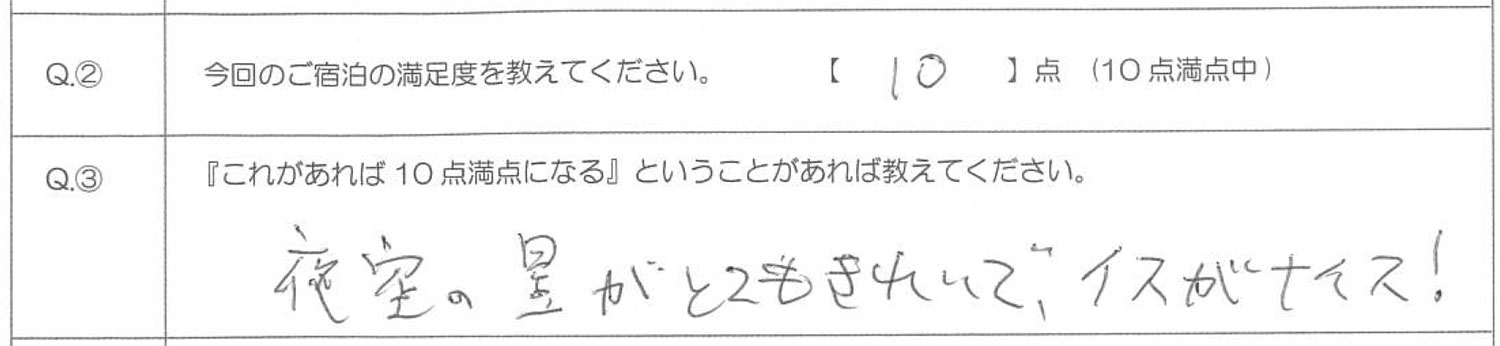 Q.② 今回のご宿泊の満足度を教えてください。 【 10 】点 (10点満点中)
Q.③ 『これがあれば10点満点になる』ということがあれば教えてください。
夜空の星がとてもきれいで、イスがナイス!